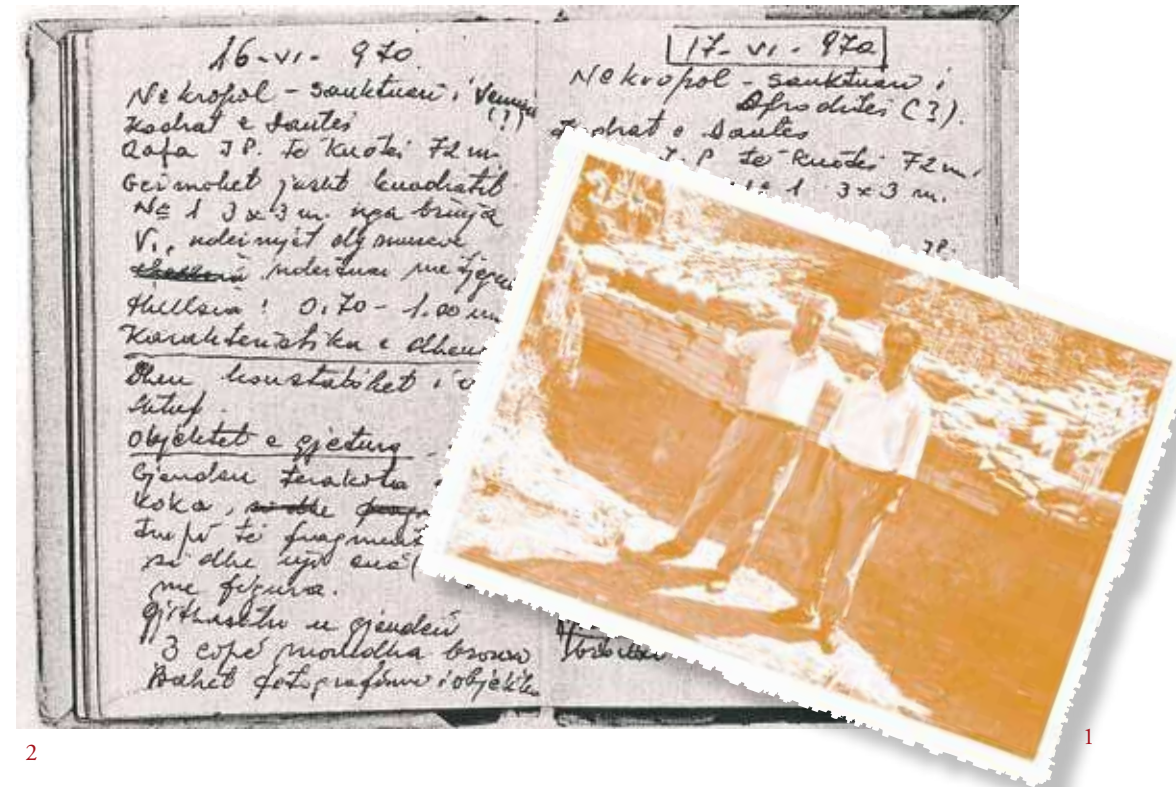 16-VI-970.
Nekropol - Sanktuari i Venusi
(?)
Kodrat e Dautës
Qafa JP. të Kuotës 72 m.
Gërmohet jasht kuadratit
№ 1 3x3 m. nga brinja
V., ndërmjet dy mureve
ndërtuar me
thellsia: 0,70 - 1.00 m
Karakteristika e dheut
Dheu konstatohet i
shtuf.
Objektet e gjetura
Gjenden terakota
koka,
trupi të fragment
si dhe një enë (
me figura.
Gjithashtu u gjenden
3 copë monedha bronzi
Bahet fotografimi i objektev
17-VI-970
Nekropol - Sanktuari i
Afroditës (?).
Kodrat e Dautës
J.P. të Kuotës 72 m.
1 3x3 m.
JP.
2
1